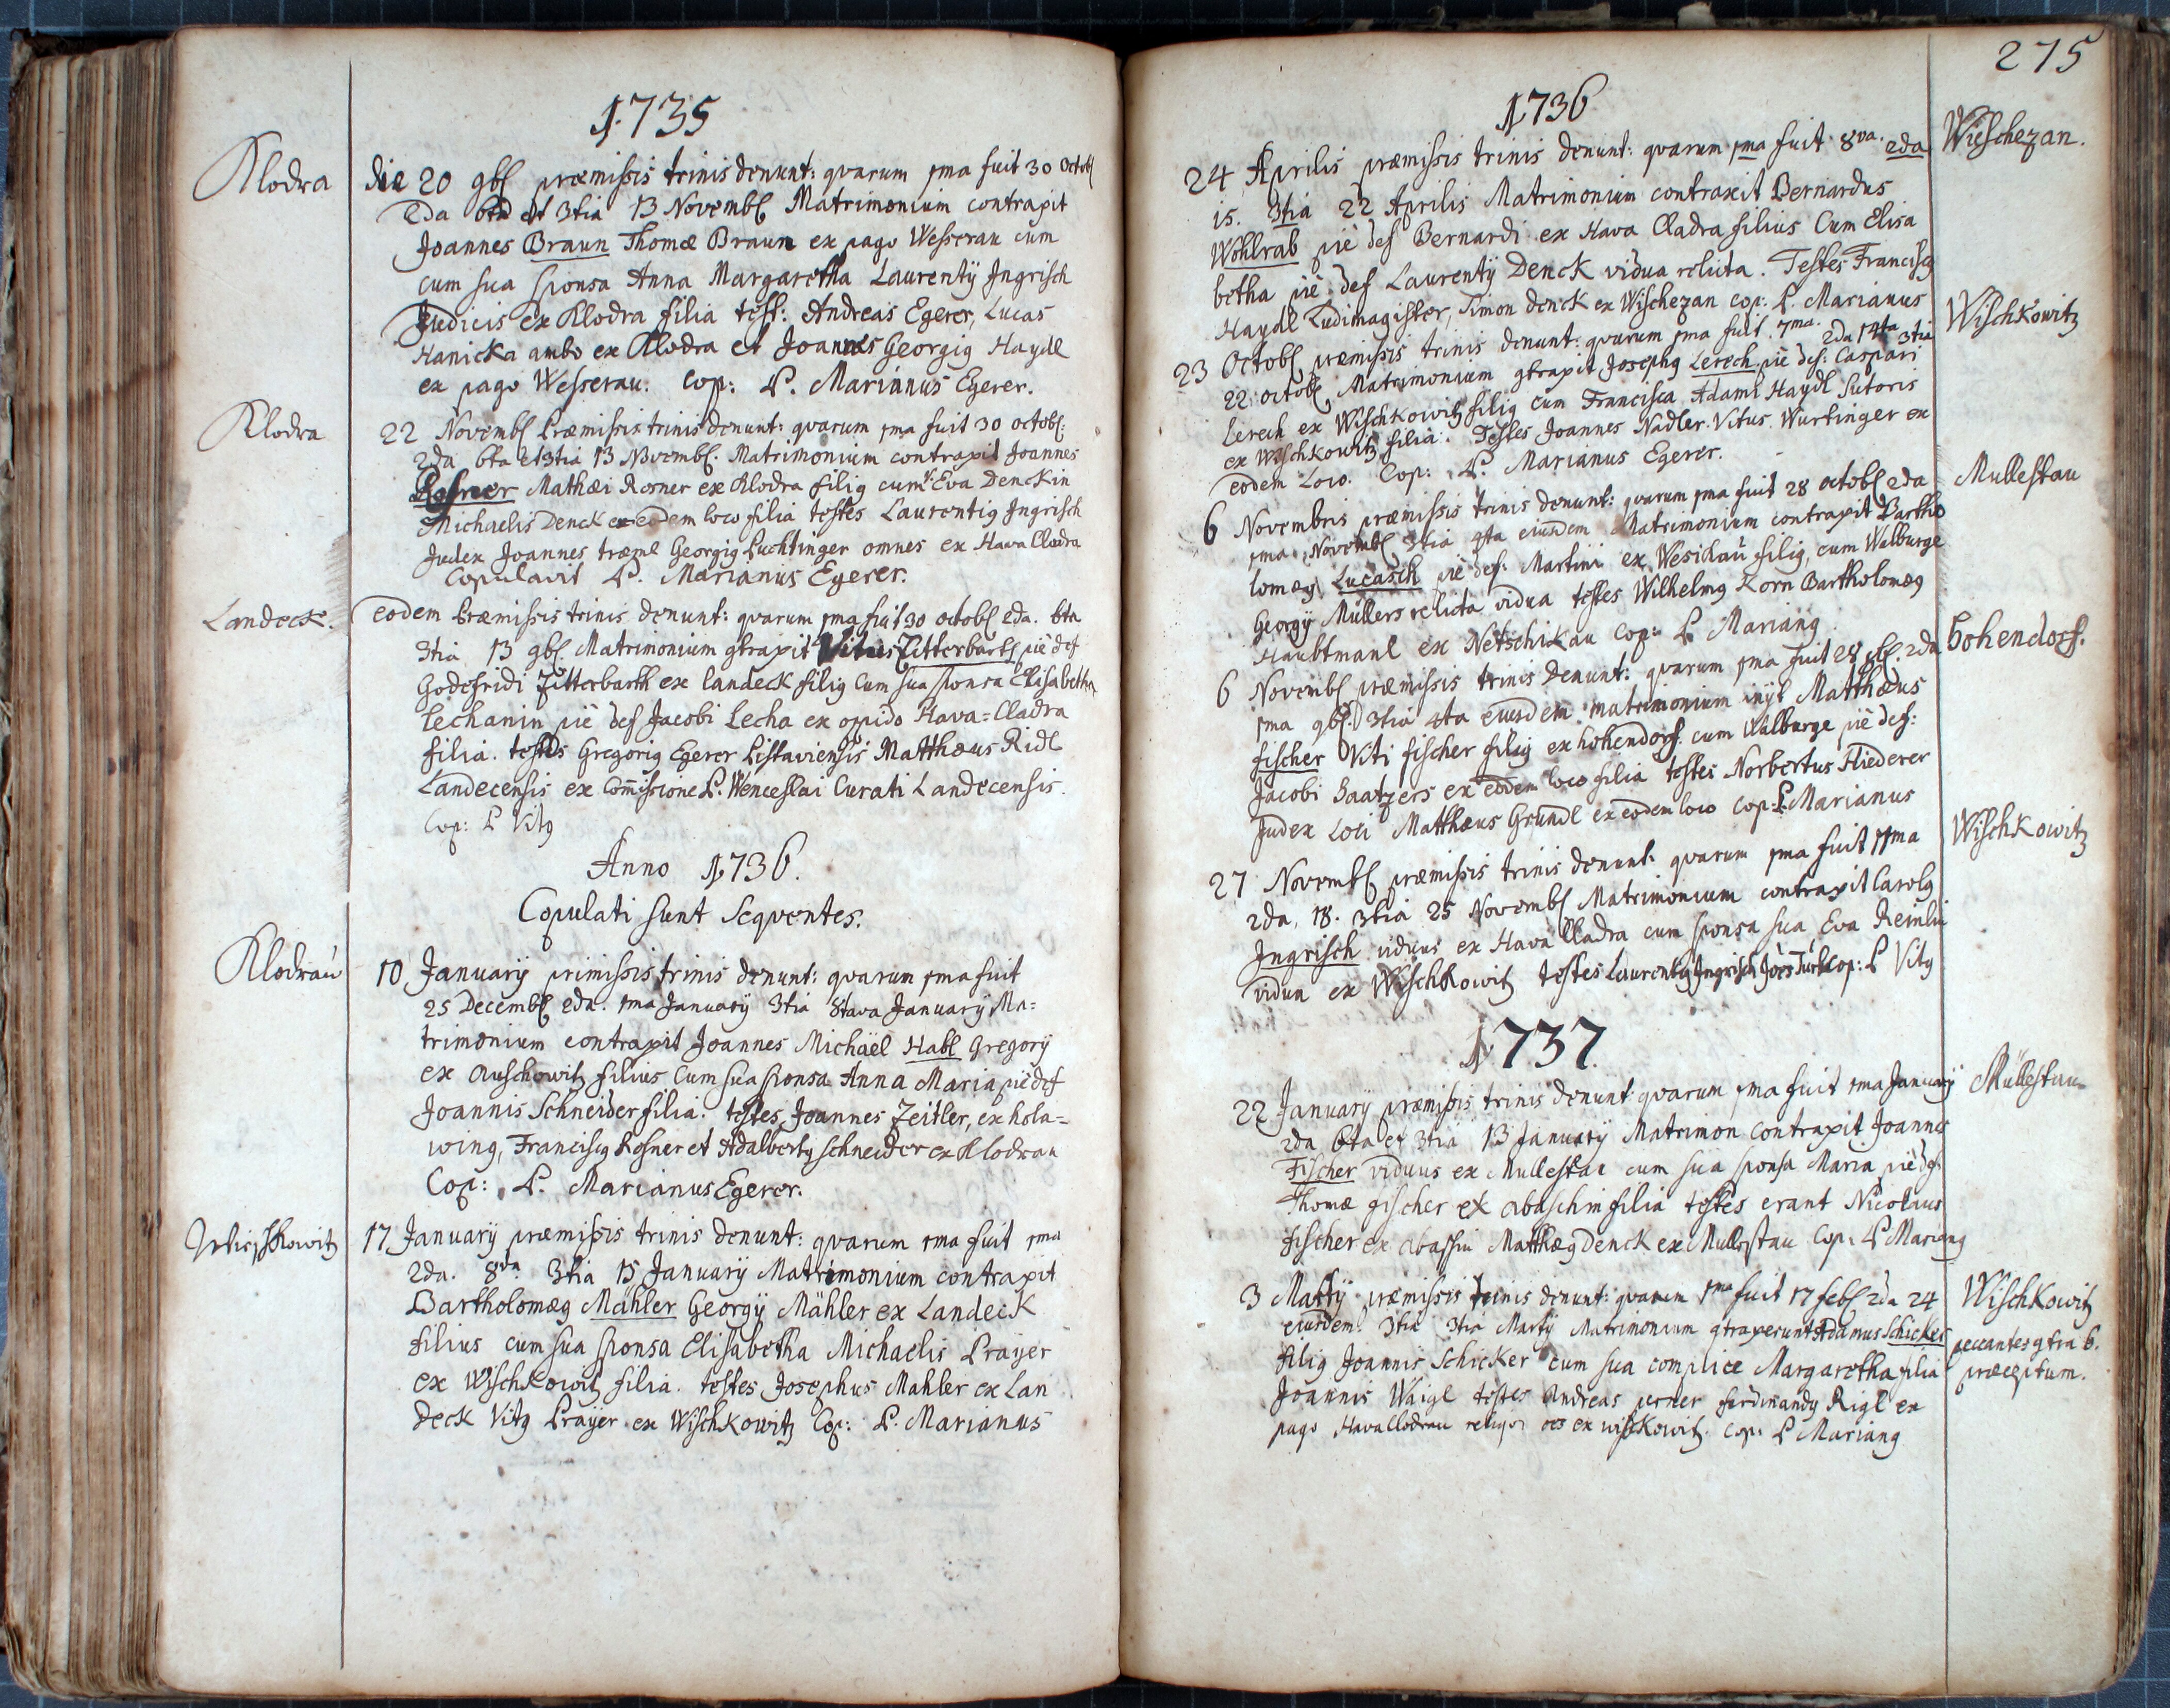 1735
Klodra
die 20 9b[ præmissis trinis denunt: qvarum 1ma fuit 30 Octob[
2da 6ta et 3tia 13 Novemb[ Matrimonium contraxit
Joannes Braun Thomæ Braun ex pago Wesserau cum
cum sua sponsa Anna Margaretha Laurentÿ Jngrisch
Judicis ex Klodra filia test: Andreas Egerer, Lucas
Hanicka ambo ex Klodra et Joannes Georgig Haydl
ex pago Wesserau. Cop: P. Marianus Egerer.
Klodra
22 Novemb[ Præmissis trinis denunt: qvarum 1ma fuit 30 octob[:
2da 6ta et 3tia 13 Novemb[. Matrimonium contraxit Joannes
Rosner Mathæi Rosner ex Klodra filig cum Eva Denckin
Michaelis Denck ex eodem loco filia testes Laurentig Jngrisch
Judex Joannes træml Georgig Luchtinger omnes ex Hava Cladra
Copulavit P. Marianus Egerer.
Landeck.
eodem Præmissis trinis denunt: qvarum 1ma fuit 30 octob[ 2da. 6ta
3tia 13 9b[. Matrimonium gtraxit Vitus Zitterbarth pie def
Godefridi Zitterbarth ex landeck filig Cum sua sponsa Elisabetha
Lechanin pie def Jacobi Lecha ex opido Hava=Cladra
filia. testes Gregorig Egerer Pistaviensis Matthæus Ridl
Landecensis ex Com̄issione P. Wenceslai Curati Landecensis.
Cop: P Vitg
Anno 1736.
Copulati sunt Seqventes.
Klodrau
10 Januarÿ primissis trinis denunt: qvarum 1ma fuit
25 Decemb[ 2da. 1ma Januarÿ 3tia 8tava Januarÿ Ma=
trimonium contraxit Joannes Michaël Habl Gregorÿ
ex Auschowitz filius Cum sua sponsa Anna Maria pie def
Joannis Schneider filia. testes Joannes Zeitler, ex hola=
wing, Franciscg Rosner et Adalbertg schneider ex Klodrau
Cop: P. Marianus Egerer.
Wischkowitz
17 Januarÿ præmissis trinis denunt: qvarum 1ma fuit 1ma
2da. 8da 3tia 15 Januarÿ Matrimonium contraxit
Bartholomæg Mähler Georgÿ Mähler ex Landeck
filius cum sua sponsa Elisabetha Michaelis Prayer
ex Wischkowitz filia. testes Josephus Mahler ex Lan
deck Vitg Prayer ex Wischkowitz Cop: P. Marianus
275
1736
Wieschezan.
24 Aprilis præmissis trinis denunt: qvarum 1ma fuit 8va. 2da
15. 3tia 22 Aprilis Matrimonium contraxit Bernardus
Wohlrab pie def Bernardi ex Hava Cladra filius Cum Elisa
betha pie def Laurentÿ Denck vidua relicta. Testes Franciscg
Haydl Ludimagister, Simon Denck ex Wischezan cop: P. Marianus
Wischkowitz
23 Octob[ præmissis trinis denunt: qvarum 1ma fuit 7ma. 2da 14ta 3tia
22 octob[ Matrimonium gtraxit Josephg Lerech pie def: Caspari
Lerech ex Wischkowitz filig cum Francisca Adami Haydl Sutoris
ex Wischkowitz filia. Testes Joannes Nadler Vitus Würtinger ex
eodem Loco. Cop: P. Marianus Egerer.
Mullestau
6 Novembris præmissis trinis denunt: qvarum 1ma fuit 28 octob[ 2da
1ma Novemb[ 3tia 4ta eiusdem Matrimonium contraxit Bartho
lomæg Lucasch pie def: Martini ex Wesickau filig, cum Walburge
Georgÿ Müllers relicta vidua testes Wilhelmg Zorn Bartholomæg
Haubtmanl ex Netschikau Cop: P Mariang
Hohendorf.
6 Novemb[ præmissis trinis Denunt: qvarum 1ma fuit 28 8b[. 2da
1ma 9b[ 3tia 4ta eiusdem matrimonium inÿt Matthæus
fischer Viti fischer filig ex hohendorf. cum Walburge pie def:
Jacobi Saatzers ex eodem loco filia testes Norbertus Fliederer
Judex Loci Matthæus Grundl ex eodem loco Cop: P. Marianus
Wischkowitz
27 Novemb[ præmissis trinis denunt: qvarum 1ma fuit 11ma
2da, 18. 3tia 25 Novemb[ Matrimonium contraxit Carolg
Jngrisch viduus ex Hava Cladra cum sponsa sua Eva Reinlin
vidua ex Wischkowitz testes Laurentig Jngrisch Joēs Türk Cop: P Vitg
1737.
Müllestau
22 Januarÿ præmissis trinis denunt: qvarum 1ma fuit 1ma Januarÿ
2da 6ta et 3tia 13 Januarÿ Matrimon contraxit Joannes
Fischer viduus ex Mullestau cum sua sponsa Maria pie def
Thomæ fischer ex abaschin filia testes erant Nicolaus
fischer ex abaschin Matthæg Denck ex Mullestau Cop: P Mariang
Wischkowitz
peccantes gtra 6.
præceptum.
3 Martÿ præmissis trinis denunt: qvarum 1ma fuit 17 feb[ 2da 24
eiusdem 3tia 3tia Martÿ Matrimonium gtraxerunt Adamus Schicker
filig Joannis Schicker cum sua complice Margaretha filia
Joannis Waigl testes Andreas perner ferdinandg Rigl ex
pago Havacllodrau reliqui oes ex wischkowitz. Cop: P Mariang